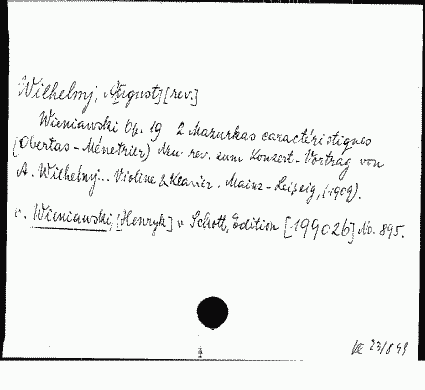 Wilhelmj, A[ugust] [rev.]
Wieniawski Op. 19 2 Mazurkas caractéristiques
(Obertas - Ménetrier) Neu rev. zum Konzert-Vortrag von
A. Wilhelmj... Violine & Klavier. Mainz - Leipzig, (1909).
v. Wieniawski, [Henryk] v Schott, Edition [199026] No. 895.
23/849